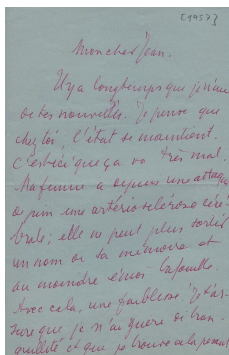 [1957]
Mon cher Jean.
Il y a longtemps que je n'ai eu
de tes nouvelles. Je pense que
chez toi, l'état se maintient.
C'est ici que ça va très mal.
Ma femme a depuis une attaque
une artério sclérose céré
brale ; elle ne peut plus sortir
un nom de sa mémoire et
au moindre émoi bafouille.
Avec cela, une faiblesse. Je t'as
sure que je n'ai guère de tran
quillité et que je trouve à la